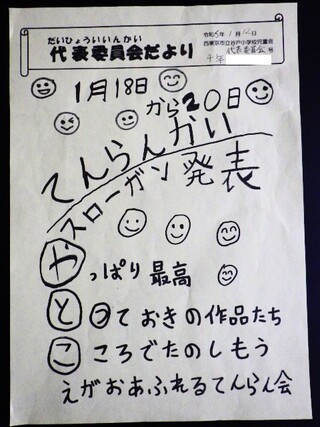 だいひょういいんかい
代表委員会だより
令和5年1月12日
西東京市立谷戸小学校児童会
代表委員会 号
4年
1月18日
から20日
てんらんかい
スローガン発表
やっぱり最高
とっておきの作品たち
こころでたのしもう
えがおあふれるてんらん会